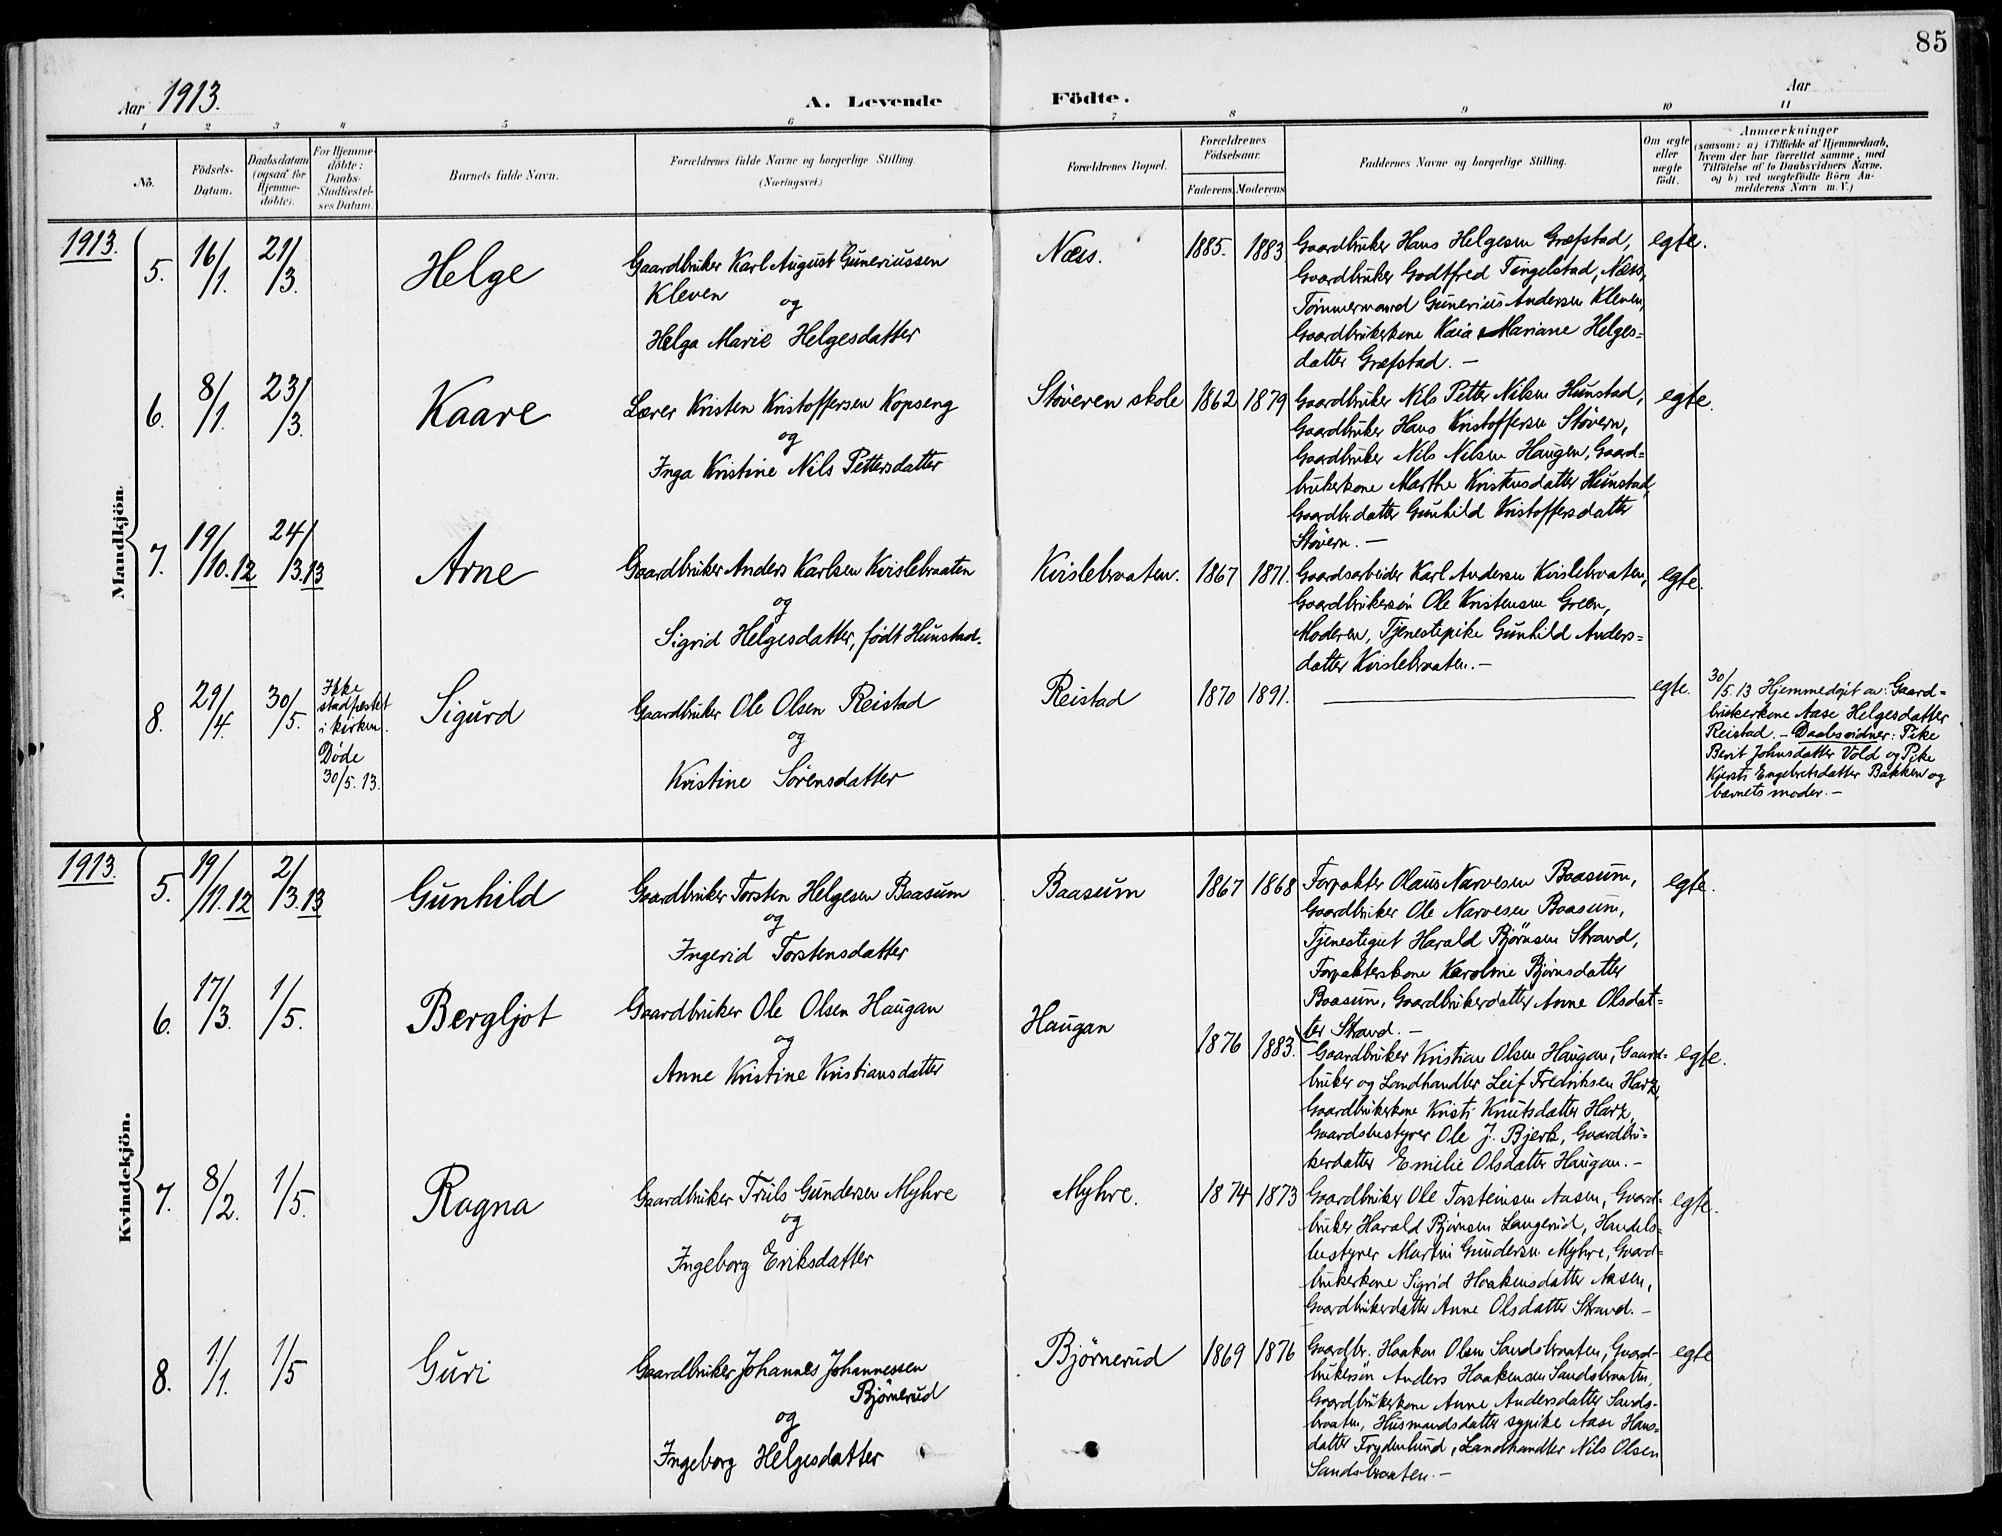 85
Aar 1913.
A. Levende Födte.
Aar
1 2 3 4 5 6 7 8 9 10 11
No.
Födsels-
Datum.
Daabsdatum
(ogsaa for
Hjemme-
döbte).
For Hjemme-
döbte:
Daabs-
Stadfæstel-
ses Datum.
Barnets fulde Navn.
Forældrenes fulde Navne og borgerlige Stilling.
(Næringsvei.)
Forældrenes Bopæl.
Forældrenes
Födselsaar.
Faderens Moderens
Faddernes Navne og borgerlige Stilling.
Om ægte
eller
uægte
födt.
Anmærkninger
(saasom: a) i Tilfælde af Hjemmedaab,
hvem der har forrettet samme, med
Tilföielse af to Daabsvidners Navne.
og b) ved uægtefödte Börn An-
melderens Navn m. V.)
Mandkjön.
1913.
5.
16/1.
21/3.
Helge
Gaardbruker Karl August Guneriussen
Kleven
og
Helga Marie Helgesdatter
Næss.
1885. 1883
Gaardbruker Hans Helgesen Græfstad,
Gaardbruker Godtfred Tingelstad, Næss,
Tømmermand Gunerius Andersen Kleven,
Gaardbrukerkone Kaia Mariane Helges=
datter Græfstad. —
egte.
6.
8/1.
23/3.
Kaare
Lærer Kristen Kristoffersen Kopseng
og
Inga Kristine Nils Pettersdatter
Støveren skole
1862 1879
Gaardbruker Nils Petter Nilsen Hunstad,
Gaardbruker Hans Kristoffersen Støvern,
Gaardbruker Nils Nilsen Haugen, Gaard=
brukerkone Marthe Kristensdatter Hunstad,
Gaardbr.datter Gunhild Kristoffersdatter
Støvern. —
egte.
7.
19/10.12
24/3.13
Arne
Gaardbruker Anders Karlsen Kvislebraaten
og
Sigrid Helgesdatter, født Hunstad.
Kvislebraaten.
1867 1871.
Gaardsarbeider Karl Andersen Kvislebraaten,
Gaardbrukersön Ole Kristensen Green,
Moderen, Tjenestepike Gunhild Anders=
datter Kvislebraaten. —
egte.
8.
29/4.
30/5.
Ikke
stadfæstet
i kirken.
Døde
30/5.13.
Sigurd
Gaardbruker Ole Olsen Reistad
og
Kristine Sörensdatter
Reistad
1870 1891.
egte.
30/5.13 Hjemmedøpt av: Gaard=
brukerkone Aase Helgesdatter
Reistad. — Daabsvidner: Pike
Berit Johnsdatter Vold og Pike
Kjersti Engebretsdatter Bakken og
barnets moder. —
Kvindekjön.
1913.
5.
19/11.12
2/3.13
Gunhild
Gaardbruker Torsten Helgesen Baasum
og
Ingerid Torstensdatter
Baasum
1867 1868
Forpakter Olaus Narvesen Baasum,
Gaardbruker Ole Narvesen Baasum,
Tjenestegut Harald Bjørnsen Strand,
Forpakterskone Karoline Bjørnsdatter
Baasum, Gaardbrukerdatter Anne Olsdat=
ter Strand. —
egte.
6.
17/3.
1/5.
Bergljot
Gaardbruker Ole Olsen Haugan
og
Anne Kristine Kristiansdatter
Haugan
1876 1883.
Gaardbruker Kristian Olsen Haugan, Gaard=
bruker og Landhandler Leif Fredriksen Harz,
Gaardbrukerkone Kristi Knutsdatter Harz,
Gaardsbestyrer Ole J. Bjerk, Gaardbru=
kerdatter Emilie Olsdatter Haugan. —
egte.
7.
8/2.
1/5.
Ragna
Gaardbruker Truls Gundersen Myhre
og
Ingeborg Eriksdatter
Myhre.
1874 1873
Gaardbruker Ole Torsteinsen Aasen, Gaard=
bruker Harald Bjørnsen Langerud, Handels=
bestyrer Martin Gundersen Myhre, Gaard=
brukerkone Sigrid Haakensdatter Aasen,
Gaardbrukerdatter Anne Olsdatter Strand. —
egte.
8.
1/1.
1/5
Guri
Gaardbruker Johannes Johannessen
Bjørnerud
og
Ingeborg Helgesdatter
Bjørnerud
1869 1876
Gaardbr. Haaken Olsen Sandsbraaten, Gaard=
brukersön Anders Haakensen Sandsbraaten,
Gaardbrukerkone Anne Andersdatter Sands=
braaten, Husmandsdatter sypike Aase Hans=
datter Frydenlund, Landhandler Nils Olsen
Sandsbraaten. —
egte